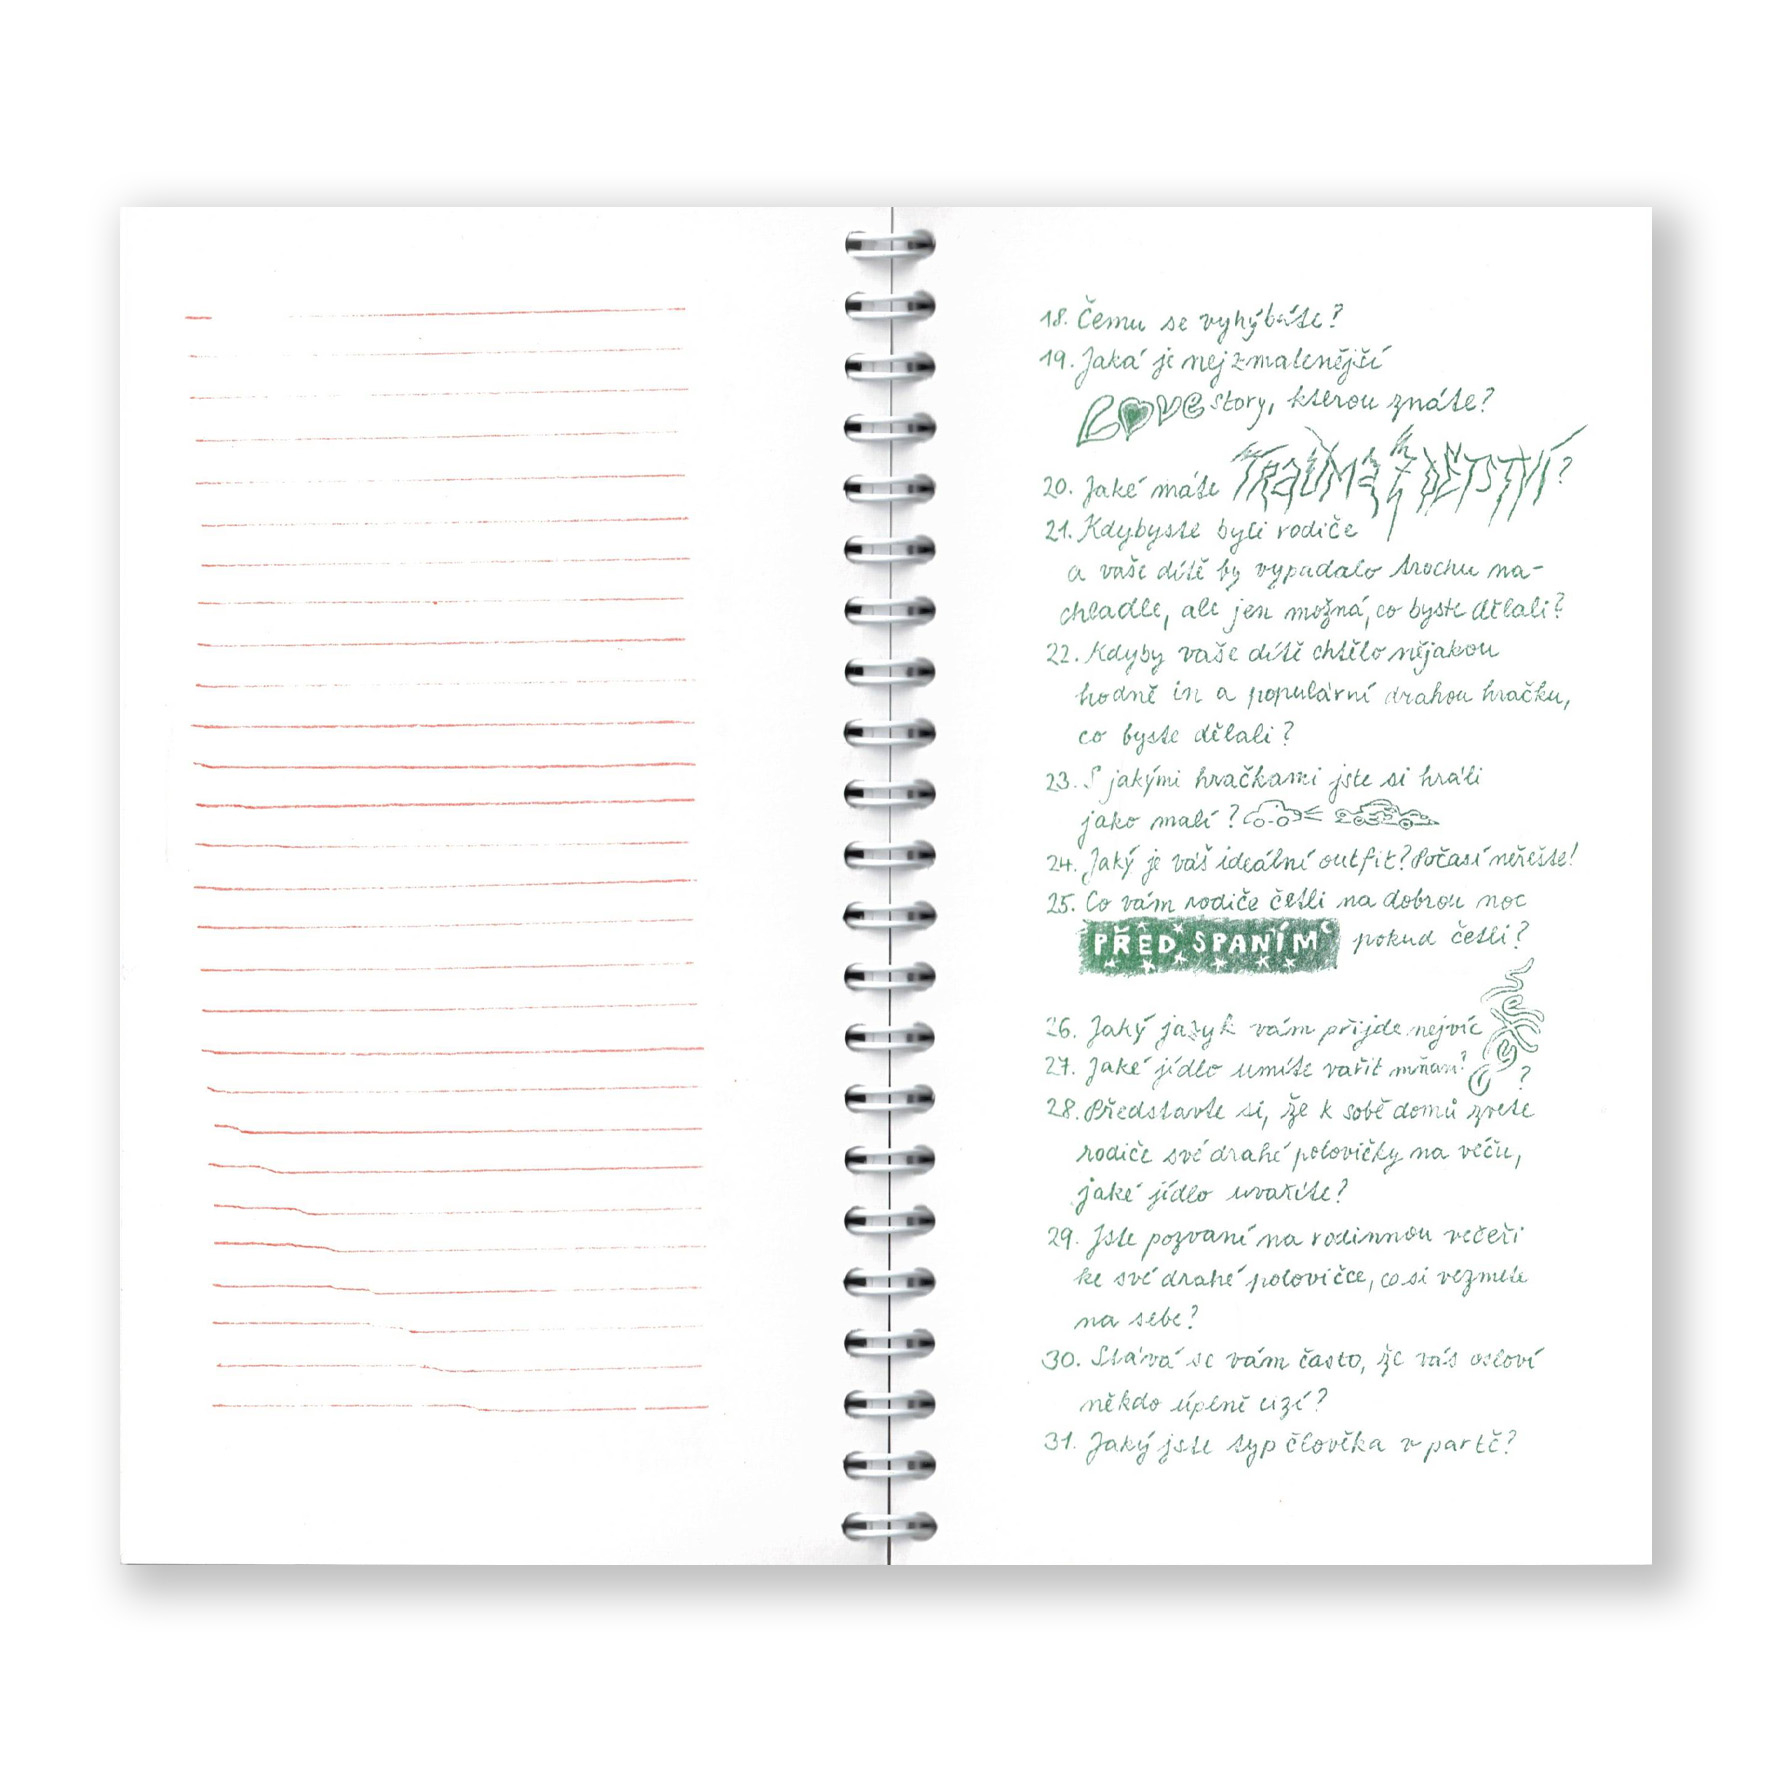 18. Čemu se vyhýbáte?
19. Jaká je nejzmatenější
Love story, kterou znáte?
20. Jaké máte TRAUMA Z DĚTSTVÍ?
21. Kdybyste byli rodiče
a vaše dítě by vypadalo trochu na-
chladle, ale jen možná, co byste dělali?
22. Kdyby vaše dítě chtělo nějakou
hodně in a populární drahou hračku,
co byste dělali?
23. S jakými hračkami jste si hráli
jako malí?
24. Jaký je váš ideální outfit? Počasí neřešte!
25. Co vám rodiče četli na dobrou noc
PŘED SPANÍM pokud četli?
26. Jaký jazyk vám přijde nejvíc sexy?
27. Jaké jídlo umíte vařit mňam?
28. Představte si, že k sobě domů zvete
rodiče své drahé polovičky na véču,
jaké jídlo uvaříte?
29. Jste pozvaní na rodinnou večeři
ke své drahé polovičce, co si vezmete
na sebe?
30. Stává se vám často, že vás osloví
někdo úplně cizí?
31. Jaký jste typ člověka v partě?